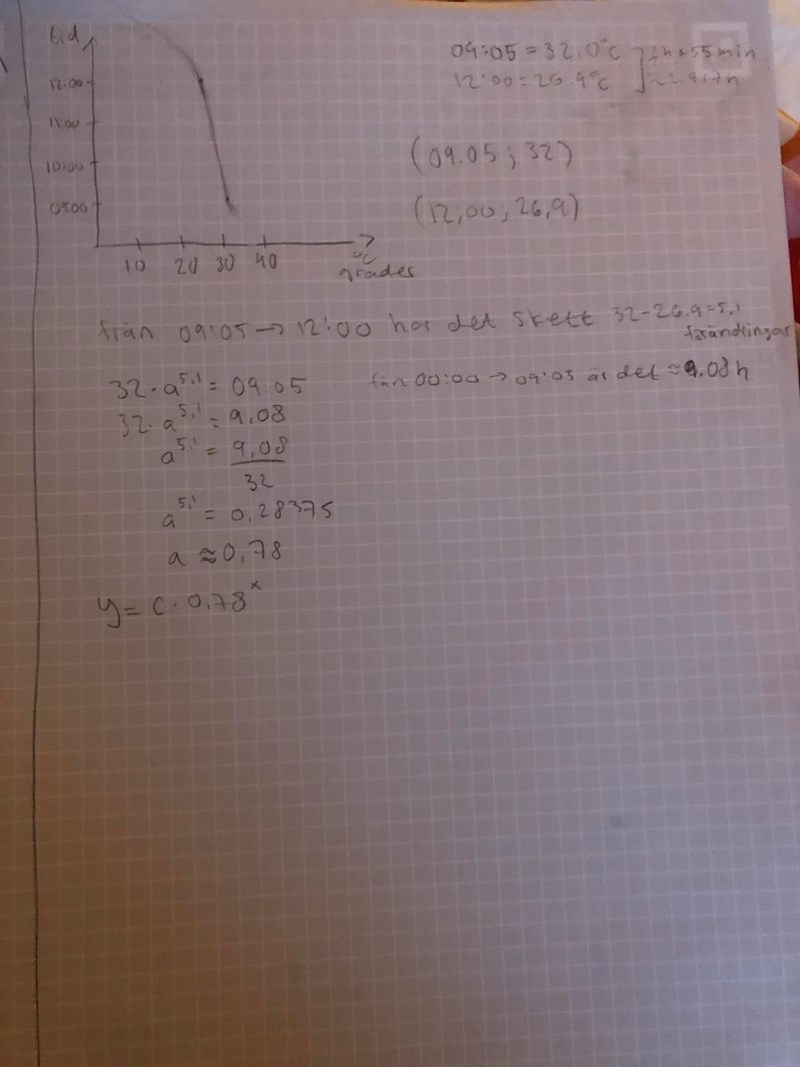 tid
12:00
11:00
10:00
09:00
10 20 30 40
°C
grader
09:05 = 32,0°C
12:00 = 26,9°C
2h + 55 min
≈ 2,917h
(09.05 ; 32)
(12,00 ; 26,9)
från 09:05 → 12:00 har det skett 32-26.9=5.1
förändringar
32·a^5,1 = 09:05
från 00:00 → 09:05 är det ≈ 9.08h
32·a^5,1 = 9,08
a^5,1 = 9,08
32
a^5,1 = 0,28375
a ≈ 0,78
y = C · 0,78^x